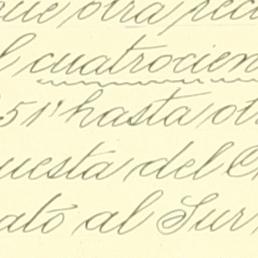 que otra pec
l cuatrocien
51' hasta ot
uesta del C
ató al Sur